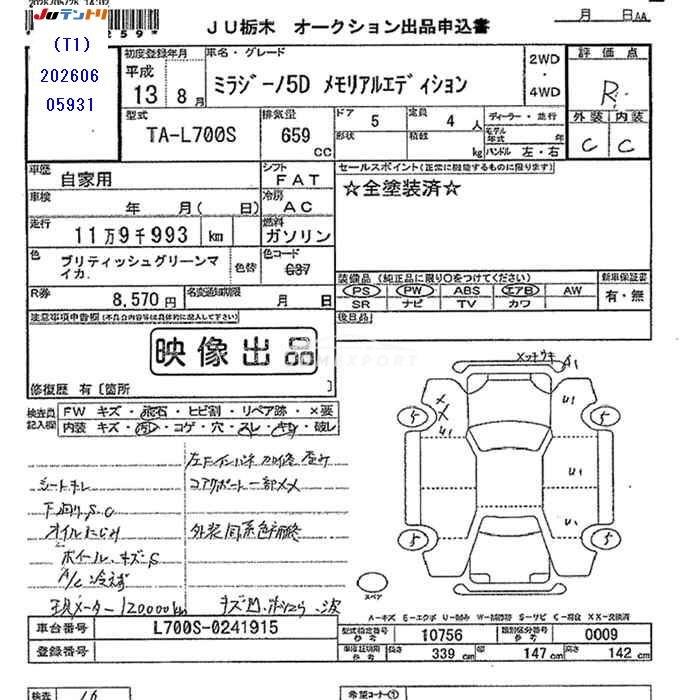 JUテントリ
(T1)
202606
05931
JU栃木 オークション出品申込書
月 日 AA
初度登録年月
平成
13 8月
車名・グレード
ミラジーノ5D メモリアルエディション
2WD
・
4WD
評価点
R
外装 内装
C C
型式
TA-L700S
排気量
659
CC
ドア 5
形状
定員 4 人
積数 kg
ディーラー・並行
モデル
年式 年
ハンドル 左・右
車歴
自家用
シフト
FAT
車検
年 月( 日)
冷房
AC
走行
11万9千993 km
燃料
ガソリン
色
ブリティッシュグリーンマ
イカ
色替
色コード
G37
R券
8,570円
名変通知期限
月 日
セールスポイント(正常に機能するものに限ります)
☆全塗装済☆
装備品(純正品に限り○をつけてください)
PS PW ABS エアB AW
SR ナビ TV カワ
新車保証書
有・無
後日品
注意事項申告欄(不具合内容等は具体的に記入して下さい)
映像出品
修復歴 有 [箇所 ]
検査員
記入欄
FW キズ・飛石・ヒビ割・リペア跡・×要
内装 キズ・汚・コゲ・穴・スレ・キレ・破レ
シートキレ
下廻りS.C
オイルにじみ
ホイールキズS
コアサポート一部メメ
外装同系色補修
120000km
A1
U1
U1
U1
U1
5
5
5
5
スペア
A-キズ E-エクボ U-凹み W-補修跡 S-サビ C-腐食 XX-交換済
車台番号
L700S-0241915
登録番号
型式指定番号
参考
10756
類別区分番号
参考
0009
車検証期限
参考
長さ 339 cm
幅 147 cm
高さ 142 cm
検査
希望コーナー①